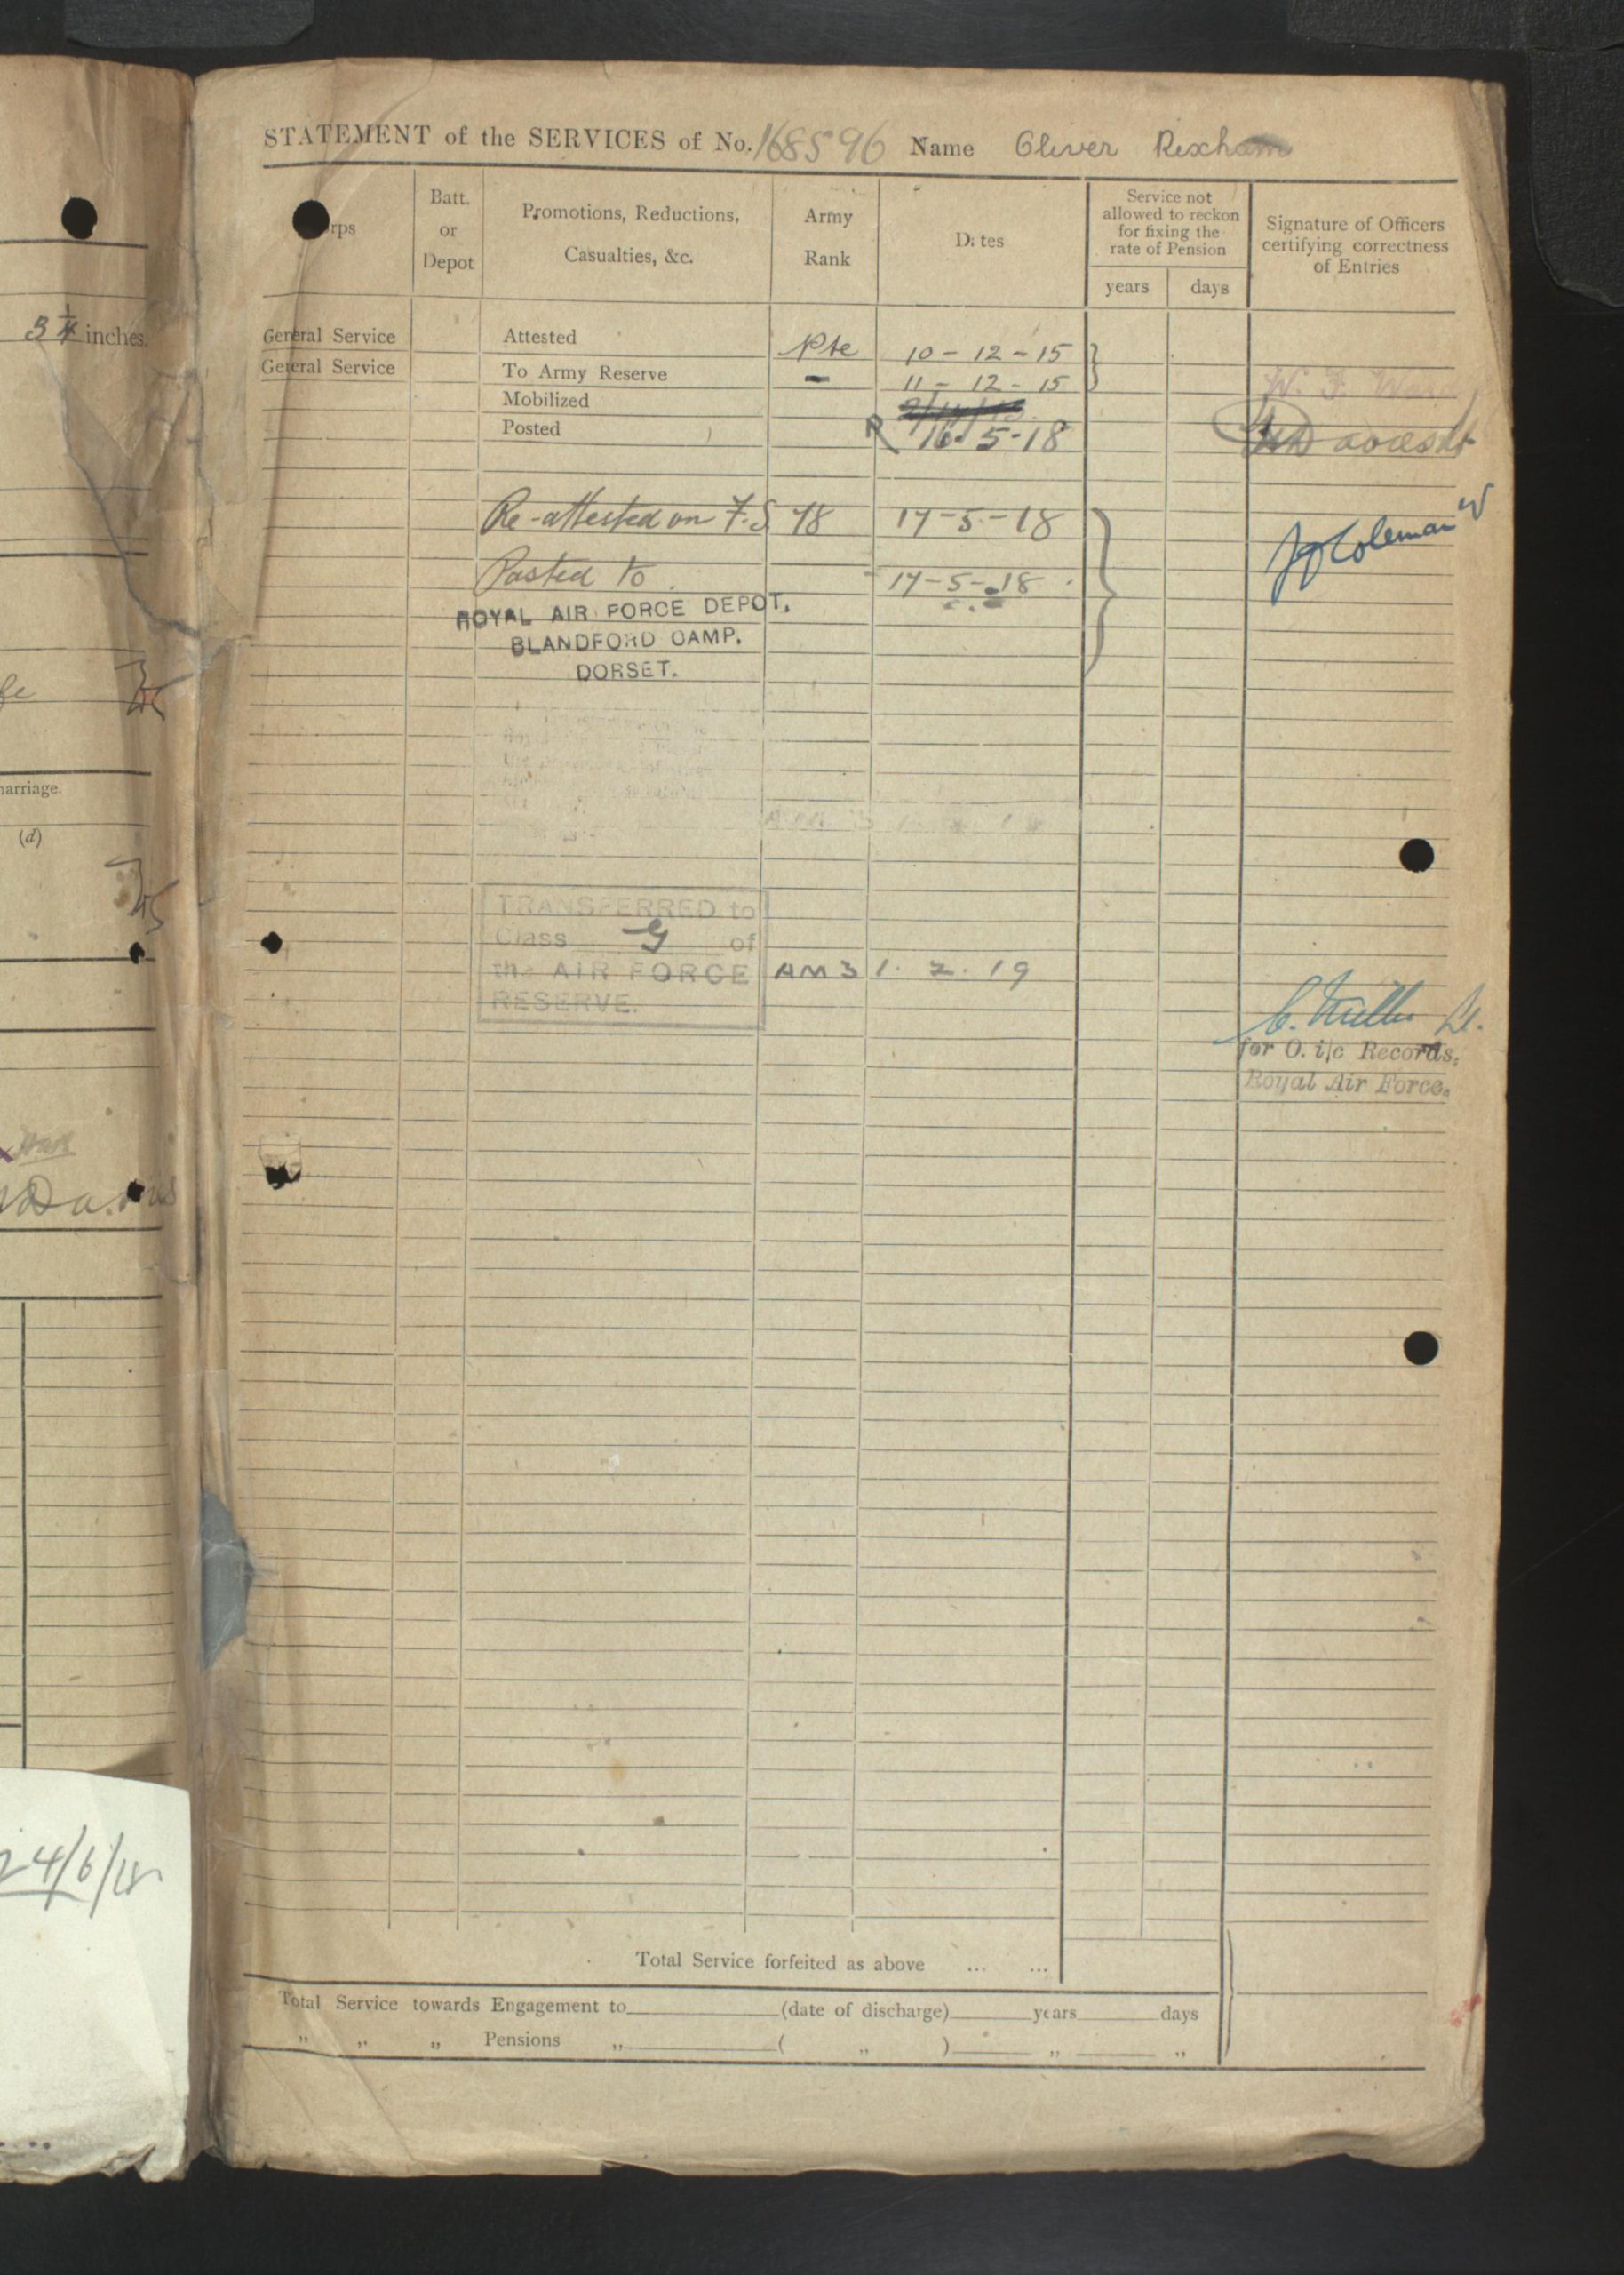 STATEMENT of the SERVICES of No. 168596 Name Oliver Rexham
rps
Batt. or Depot
Promotions, Reductions, Casualties, &c.
Army Rank
Dates
Service not allowed to reckon for fixing the rate of Pension
years days
Signature of Officers certifying correctness of Entries
General Service Attested Pte 10 - 12 - 15
General Service To Army Reserve - 11 - 12 - 15
Mobilized
Posted 16. 5-18
Re-attested on F.S. 78 17-5-18
J Coleman
Posted to 17-5-18
ROYAL AIR FORCE DEPOT,
BLANDFORD CAMP.
DORSET.
TRANSFERRED to
Class G of
the AIR FORCE AM3 1. 2. 19
RESERVE.
for O. i/c Records,
Royal Air Force.
Total Service forfeited as above ... ...
Total Service towards Engagement to (date of discharge) years days
„ „ „ Pensions „ ( „ ) „ „
3 inches.
marriage.
(d)
24/6/18